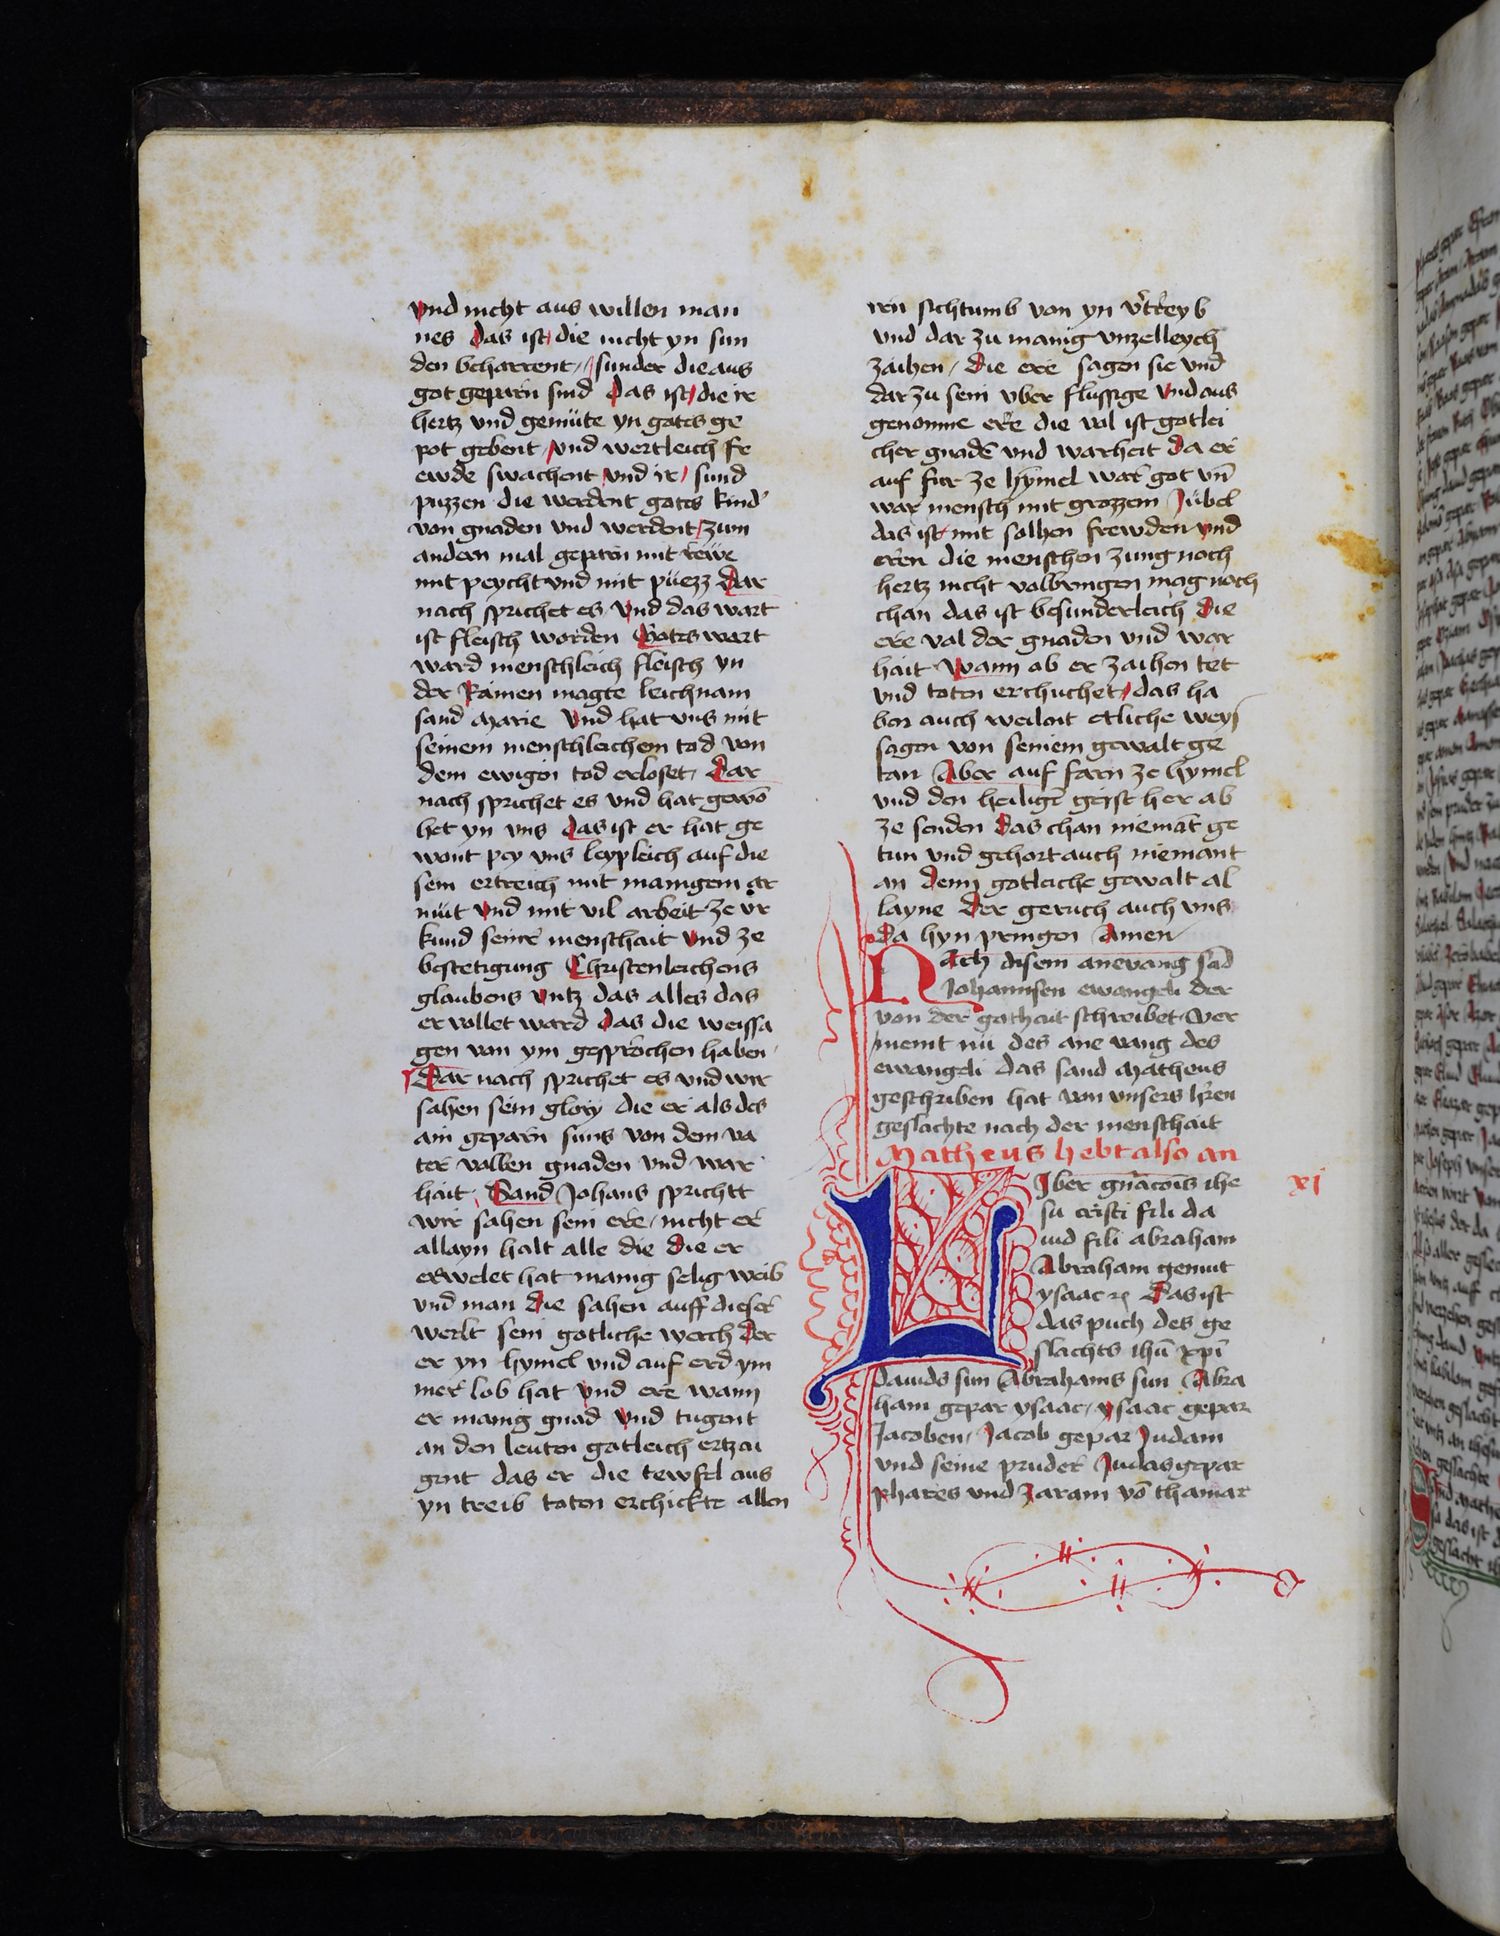 vnd nicht aus willen man
nes das ist die nicht yn sun
den beharrent / sunder die aus
got geparn sind das ist die ir
hertz vnd gemüte yn gotes ge
pot gebent / vnd wertleich fr
ewde swachent vnd ir sund
puzzen die werdent gotes kind
von gnaden vnd werdent zum
andern mal geparn mit rewe
mit peycht vnd mit püezz Dar
nach sprichet es Vnd das wart
ist fleisch worden Gotes wart
ward menschleich fleisch yn
der Rainen magte leichnam
sand Marie Vnd hat vns mit
seinem menschleichem tod von
dem ewigen tod erloset / Dar
nach sprichet es vnd hat gewō
het yn vns das ist er hat ge
wont pey vns leypleich auf die
sem ertreich mit manigem ar
müt vnd mit vil arbeit ze vr
kund seinr menschait vnd ze
bestetigung Christenleichens
glaubens vntz das alles das
er vollet ward das die weissa
gen van ym gesprochen haben
Dar nach sprichet es vnd wir
sahen sein glory die er als des
ain geparn suns von dem va
ter vollen gnaden vnd war
hait Sand Johans sprichtt
wir sahen sein ere / nicht er
allayn halt alle die die er
erwelet hat manig selig weib
vnd man die sahen auff dieser
werlt sein gotliche werch der
er yn hymel vnd auf erd ym
mer lob hat vnd ere wann
er manig gnad vnd tugent
an den leuten gotleich ertzai
gent das er die tewfel aus
yn treib toten erchickte allen
irn sichtumb von yn v̄treyb
vnd dar zu manig vnzelleych
zaihen / die ere sagen sie vnd
dar zu sein vber flussige vnd aus
genomne ere die vol ist gotlei
cher gnadē vnd warheit da er
auf fur ze hymel war got vn̄
war mensch mit grozzem Jubel
das ist mit solhen frewden vnd
eren die menschen zung noch
hertz nicht volbringen mag noch
chan das ist besunderleich die
ere vol der gnaden vnd war
hait Wann ob er zaihen tet
vnd toten erchuchet / das ha
ben auch weilent etliche weys
sagen von seinem gewalt ge
tan Aber auf farn ze hymel
vnd den heiligē geist her ab
ze senden das chan niemāt ge
tun vnd gehort auch niemant
an denn gotleiche gewalt al
layne der geruch auch vns
da hyn pringen Amen
Nach disem anevang sād
Johannsen ewangeli der
von der gothait schreibet Ver
nemt nu des ane vang des
ewangeli das sand Matheus
geschriben hat von vnsers hr̄en
geslachte nach der menschait
Matheus hebt also an
LIber gn̄acōis ihe
su cristi fili da
uid fili abraham
Abraham genuit
ysaac ⁊c Das ist
das puch des ge
slachts ihū xpī
dauids sun Abrahams sun Abra
ham gepar ysaac / ysaac gepar
Jacoben / Jacob gepar Judam
vnd seine pruder Judas gepar
phares vnd Zaram vō thamar
xj